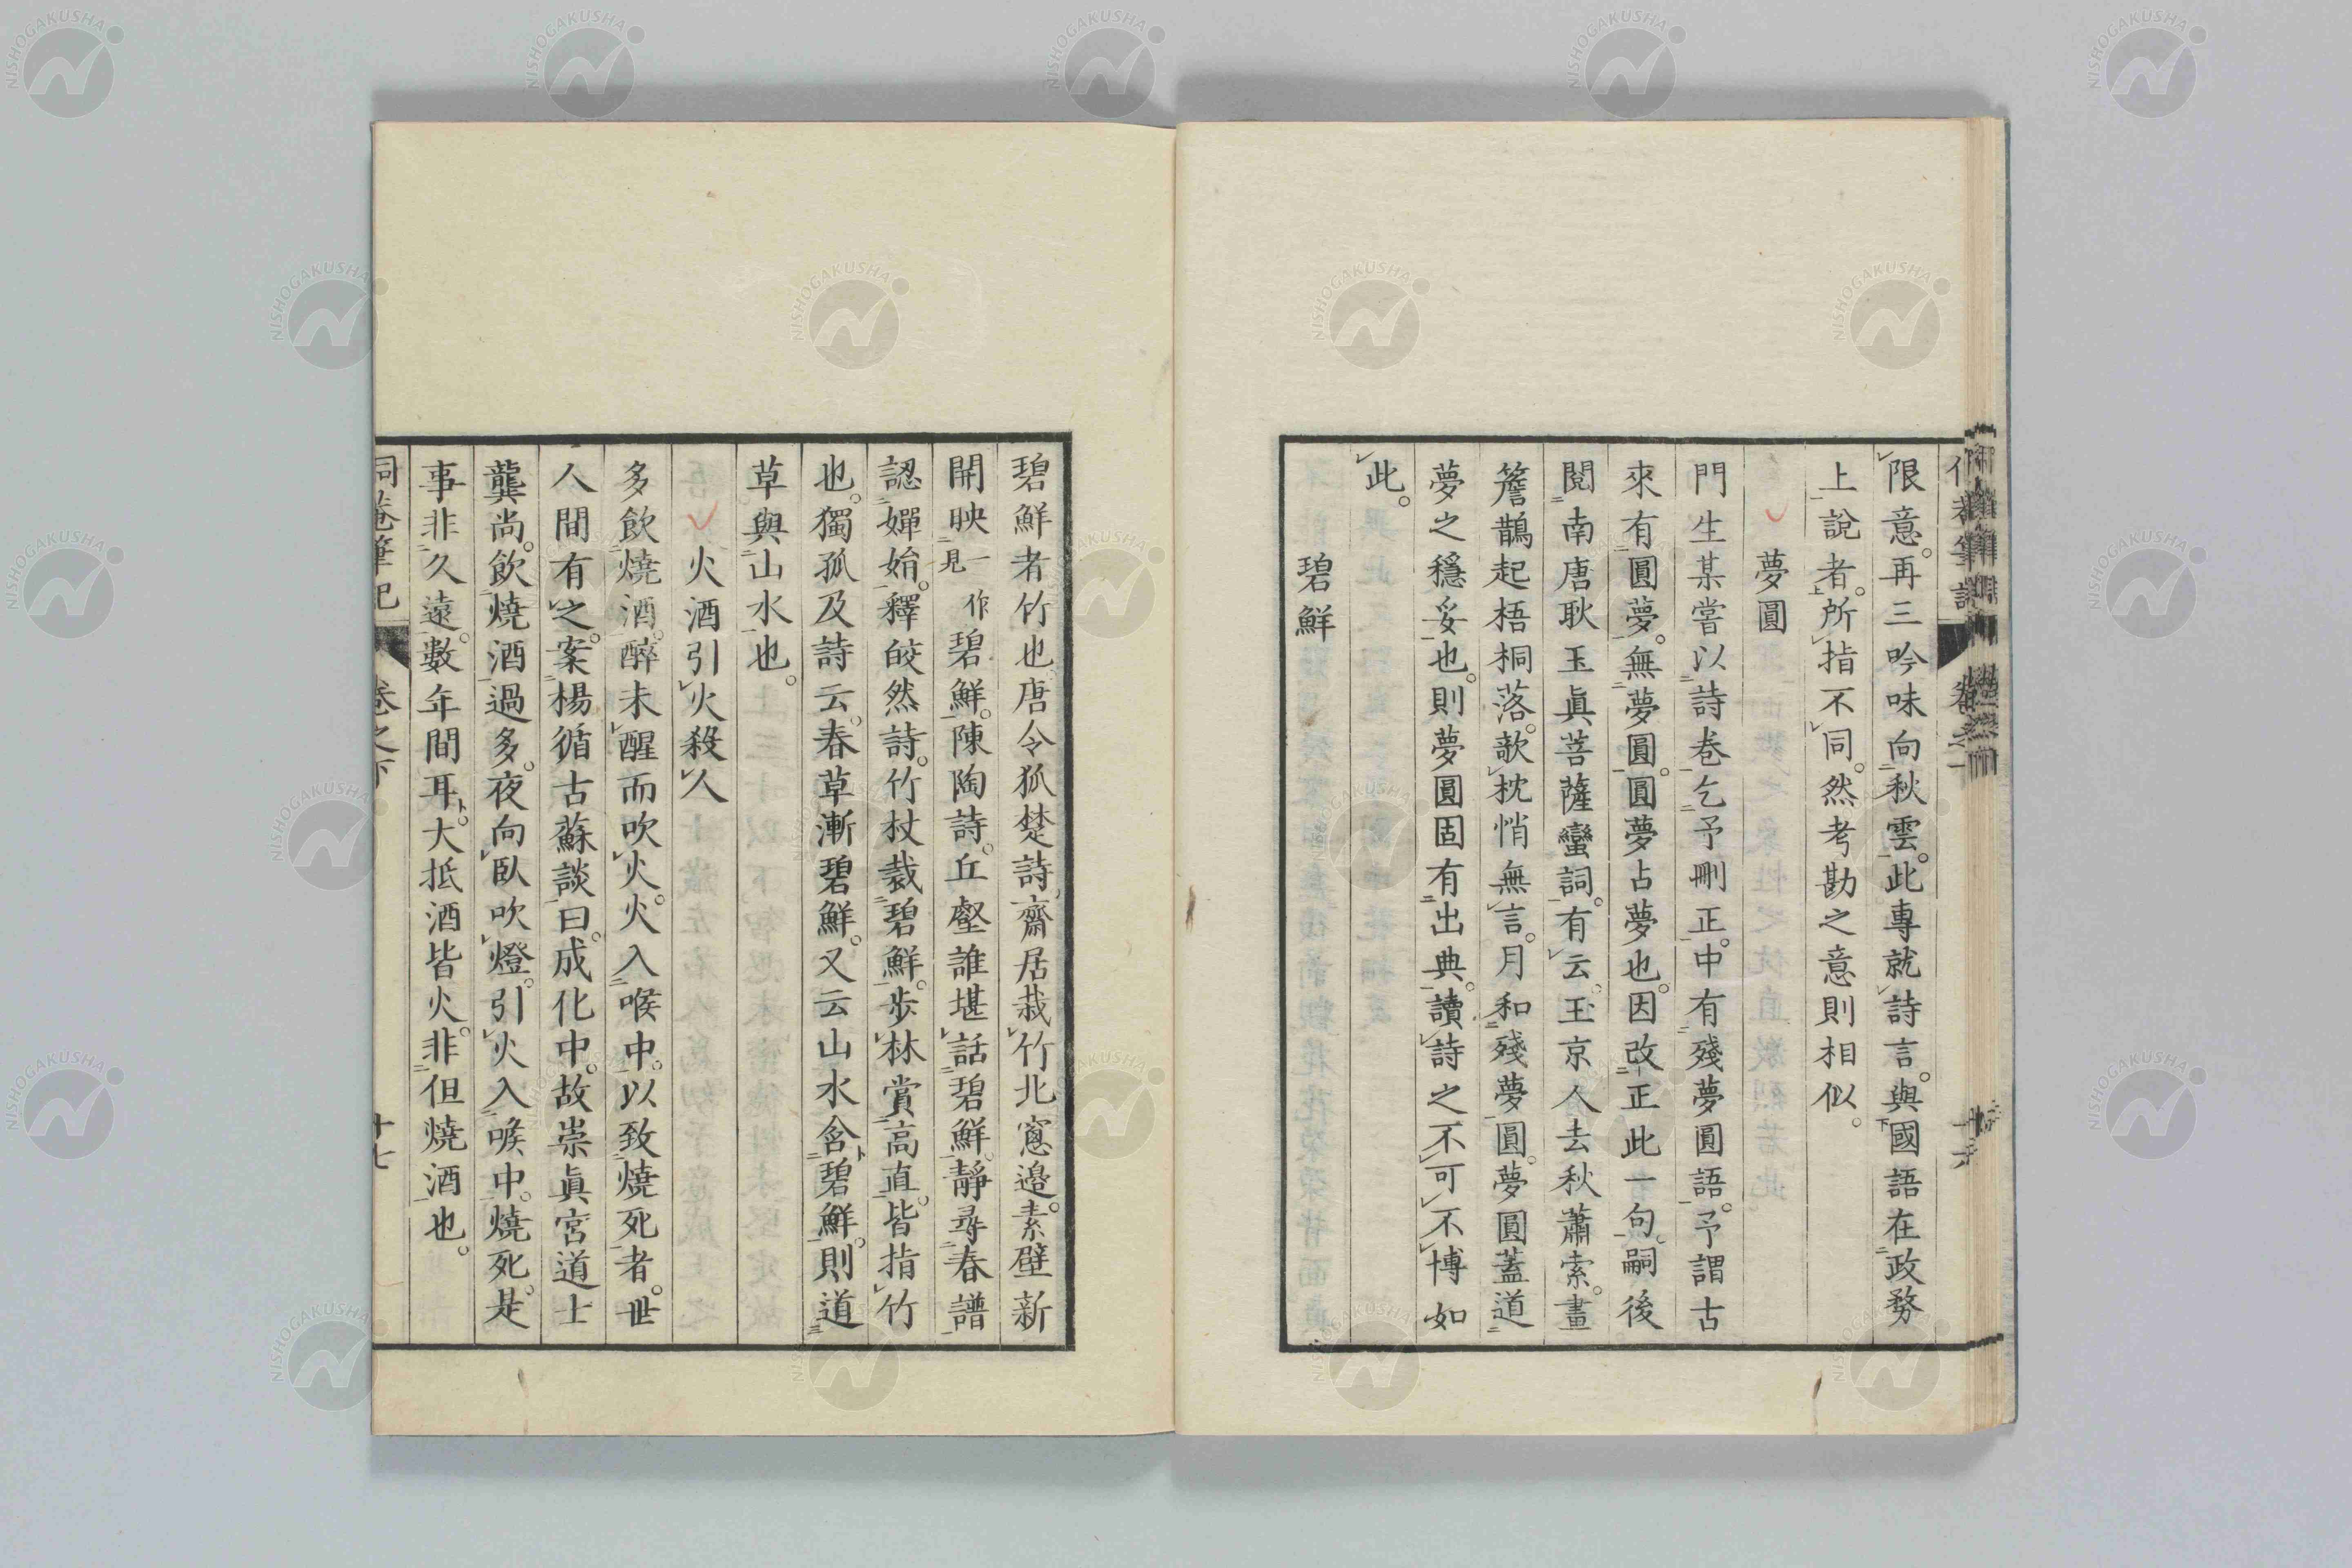 限意。再三吟味向秋雲。此專就詩言。與國語在政務
上說者。所指不同。然考勘之意則相似。
夢圓
門生某嘗以詩卷乞予刪正。中有殘夢圓語。予謂古
來有圓夢。無夢圓。圓夢占夢也。因改正此一句。嗣後
閱南唐耿玉眞菩薩蠻詞。有云。玉京人去秋蕭索。畫
簷鵲起梧桐落。欹枕悄無言。月和殘夢圓。夢圓蓋道
夢之穩妥也。則夢圓固有出典。讀詩之不可不博如
此。
碧鮮
碧鮮者竹也。唐令狐楚詩。齋居栽竹北窻邉。素壁新
開映一作見碧鮮。陳陶詩。丘壑誰堪話碧鮮。靜尋春譜
認嬋娟。釋皎然詩。竹杖裁碧鮮。步林賞高直。皆指竹
也。獨孤及詩云。春草漸碧鮮。又云山水含碧鮮。則道
草與山水也。
火酒引火殺人
多飲燒酒。醉未醒而吹火。火入喉中。以致燒死者。世
人間有之。案楊循古蘇談曰。成化中。故崇眞宮道士
龔尚。飲燒酒過多。夜向臥吹燈。引火入喉中。燒死。是
事非久遠。數年間耳。大抵酒皆火。非但燒酒也。
侗菴筆記 卷之下 十七
NISHOGAKUSHA